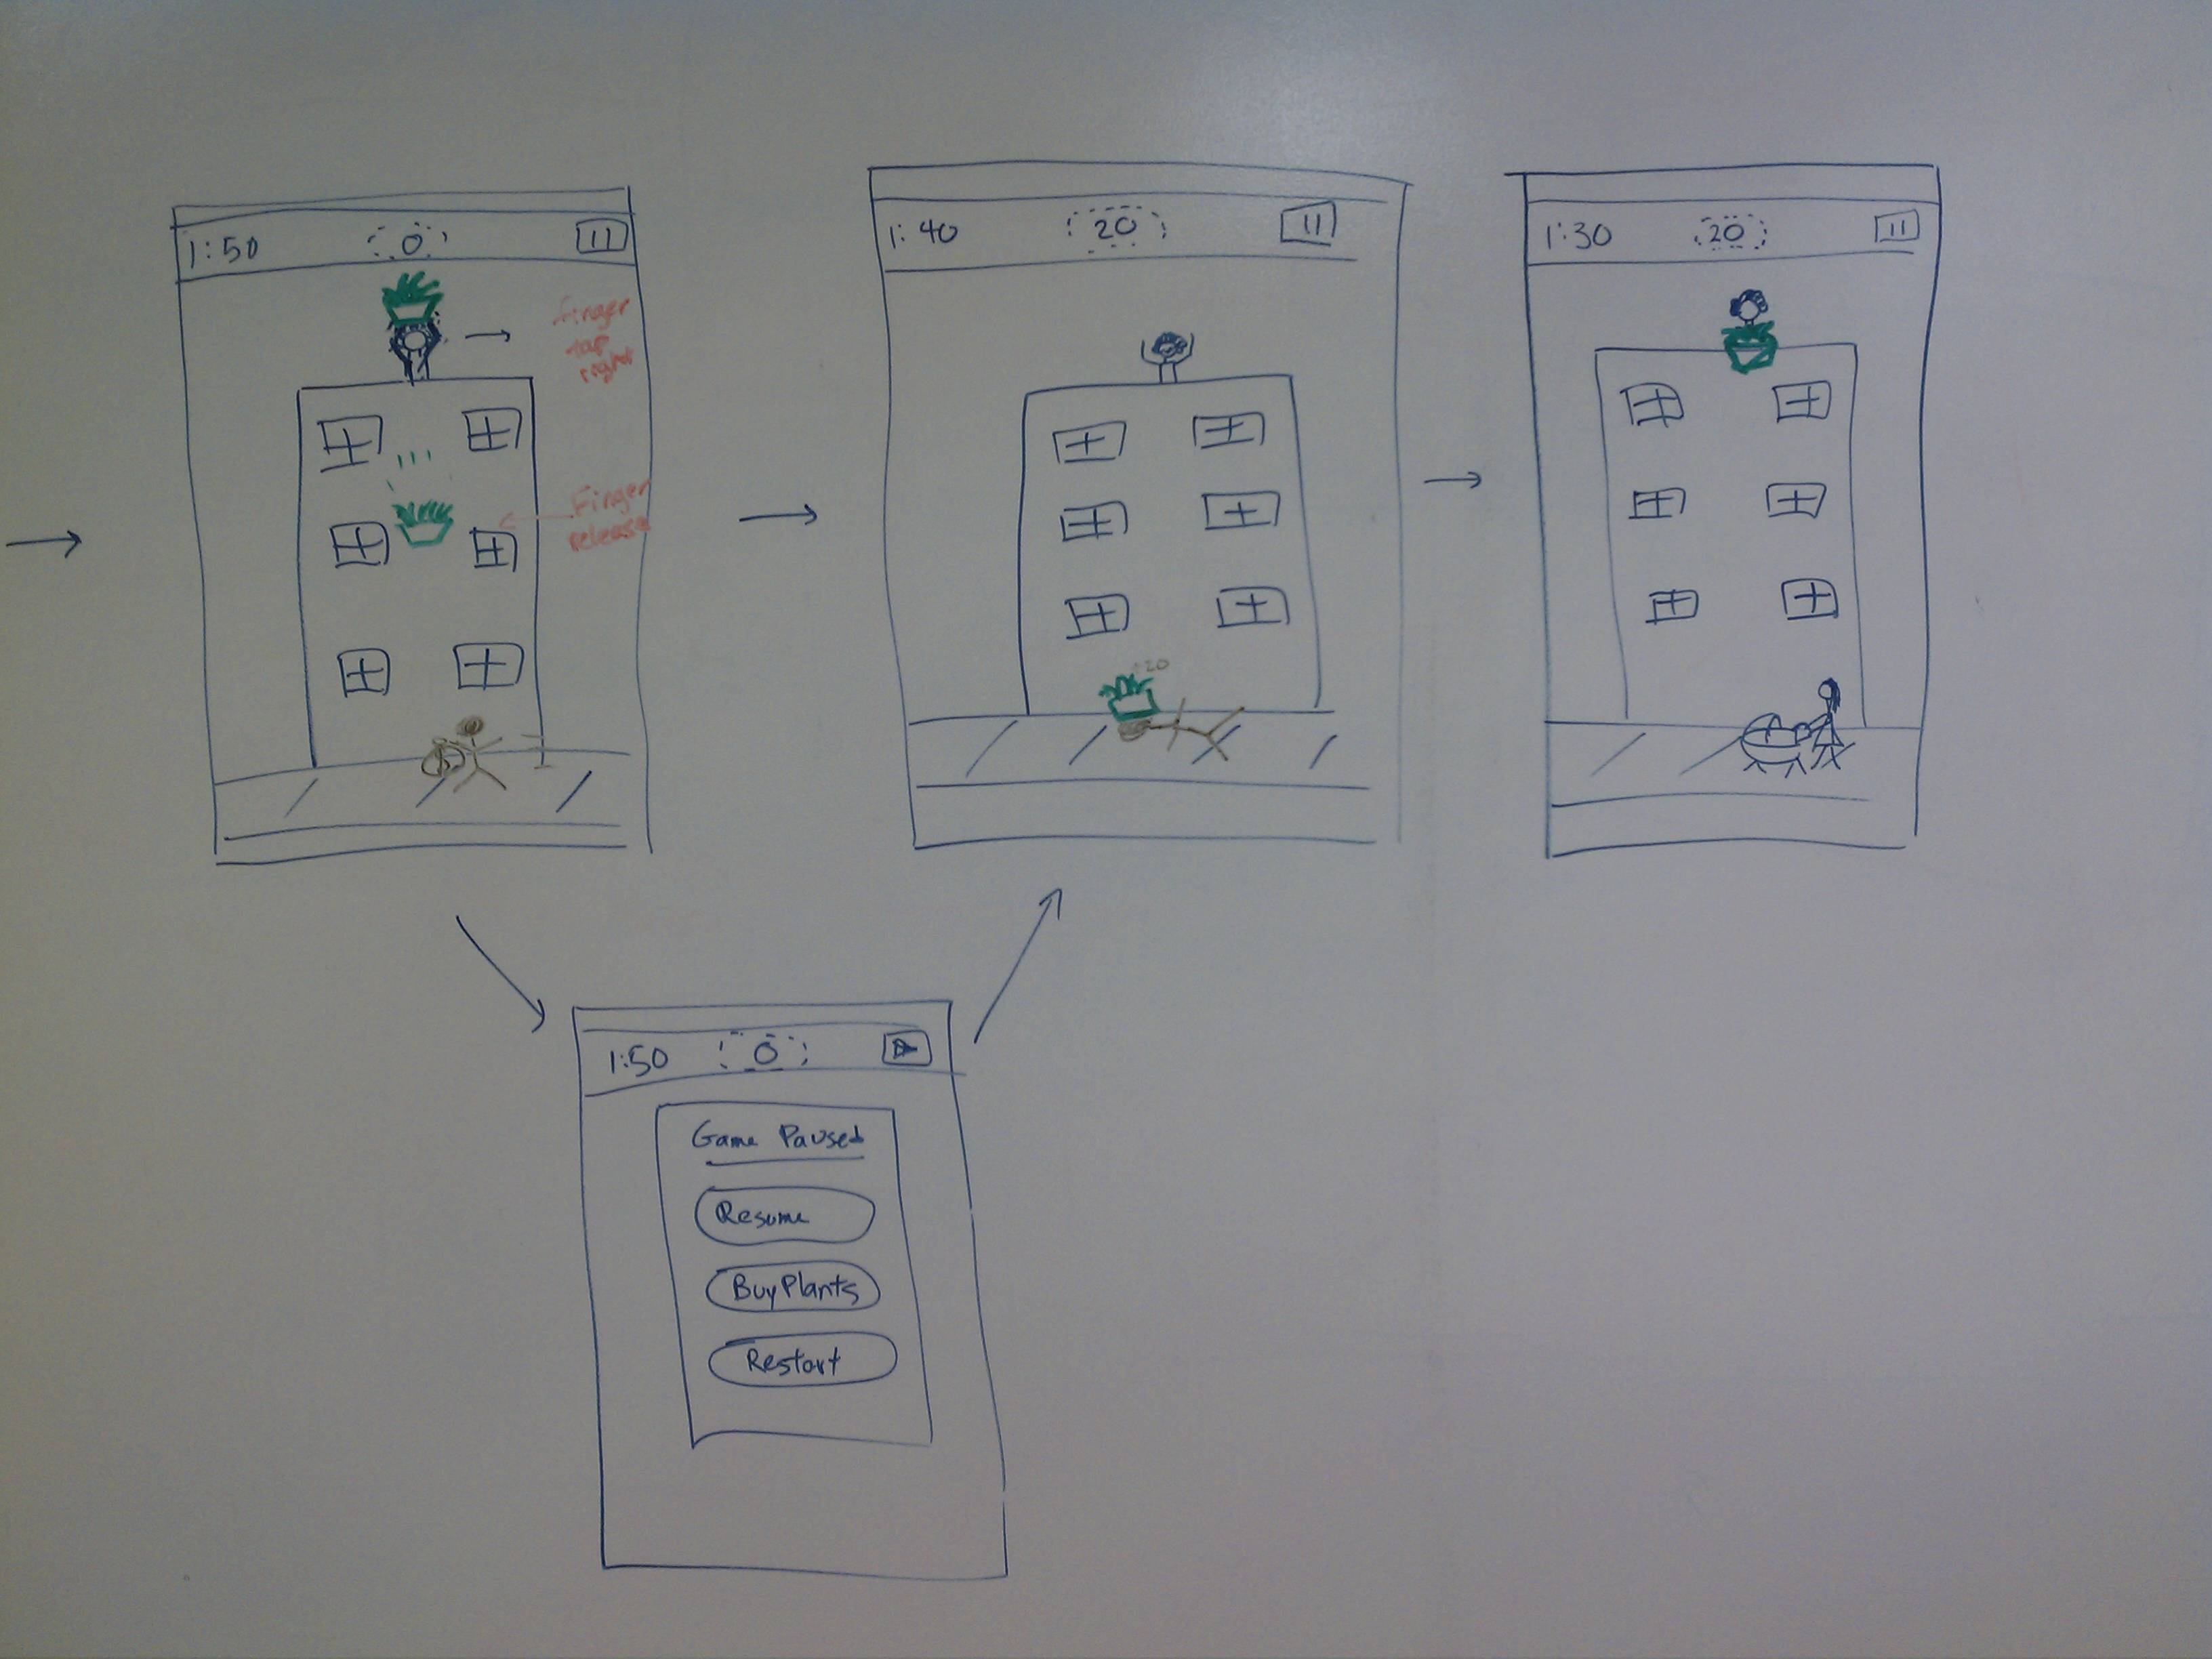 1:50 0
finger
tap
right
Finger
release
1:40 20
+20
1:30 20
1:50 0
Game Paused
Resume
Buy Plants
Restart